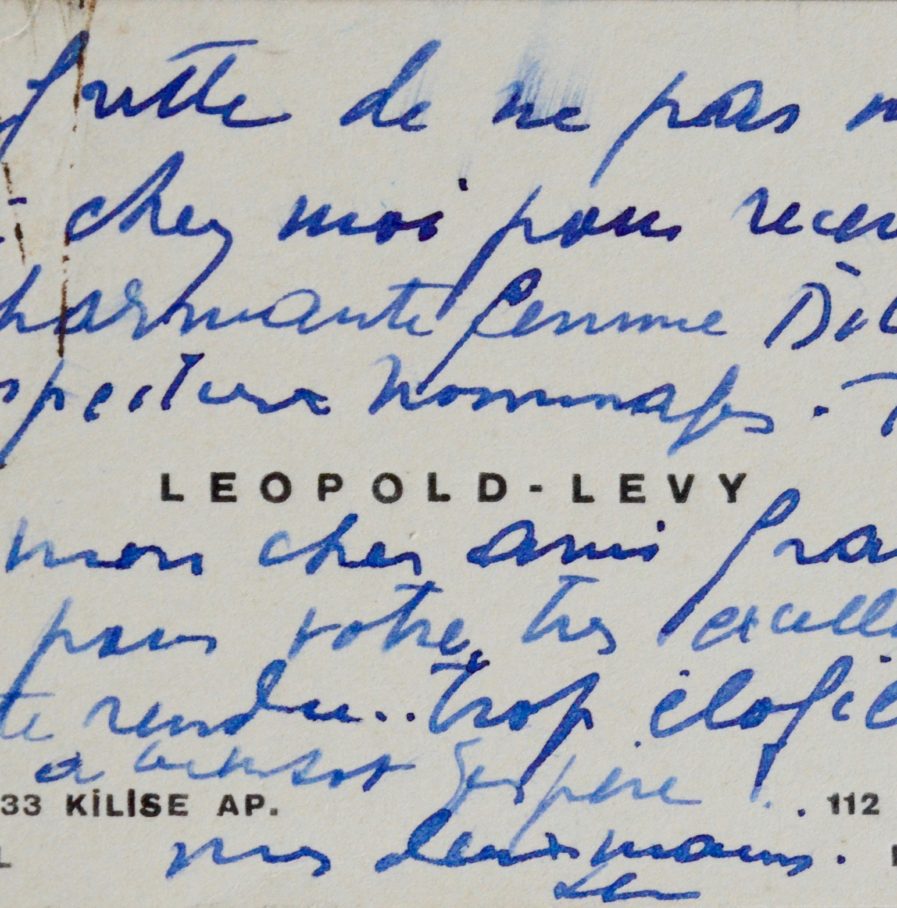 de ne pas
chez moi pour
harmante femme
hommages.
LEOPOLD-LEVY
mon cher ami
pour votre, très excell
te rendu.. trop élogie
a bientot j'espère !
33 KİLİSE AP. 112
mes deux mains.